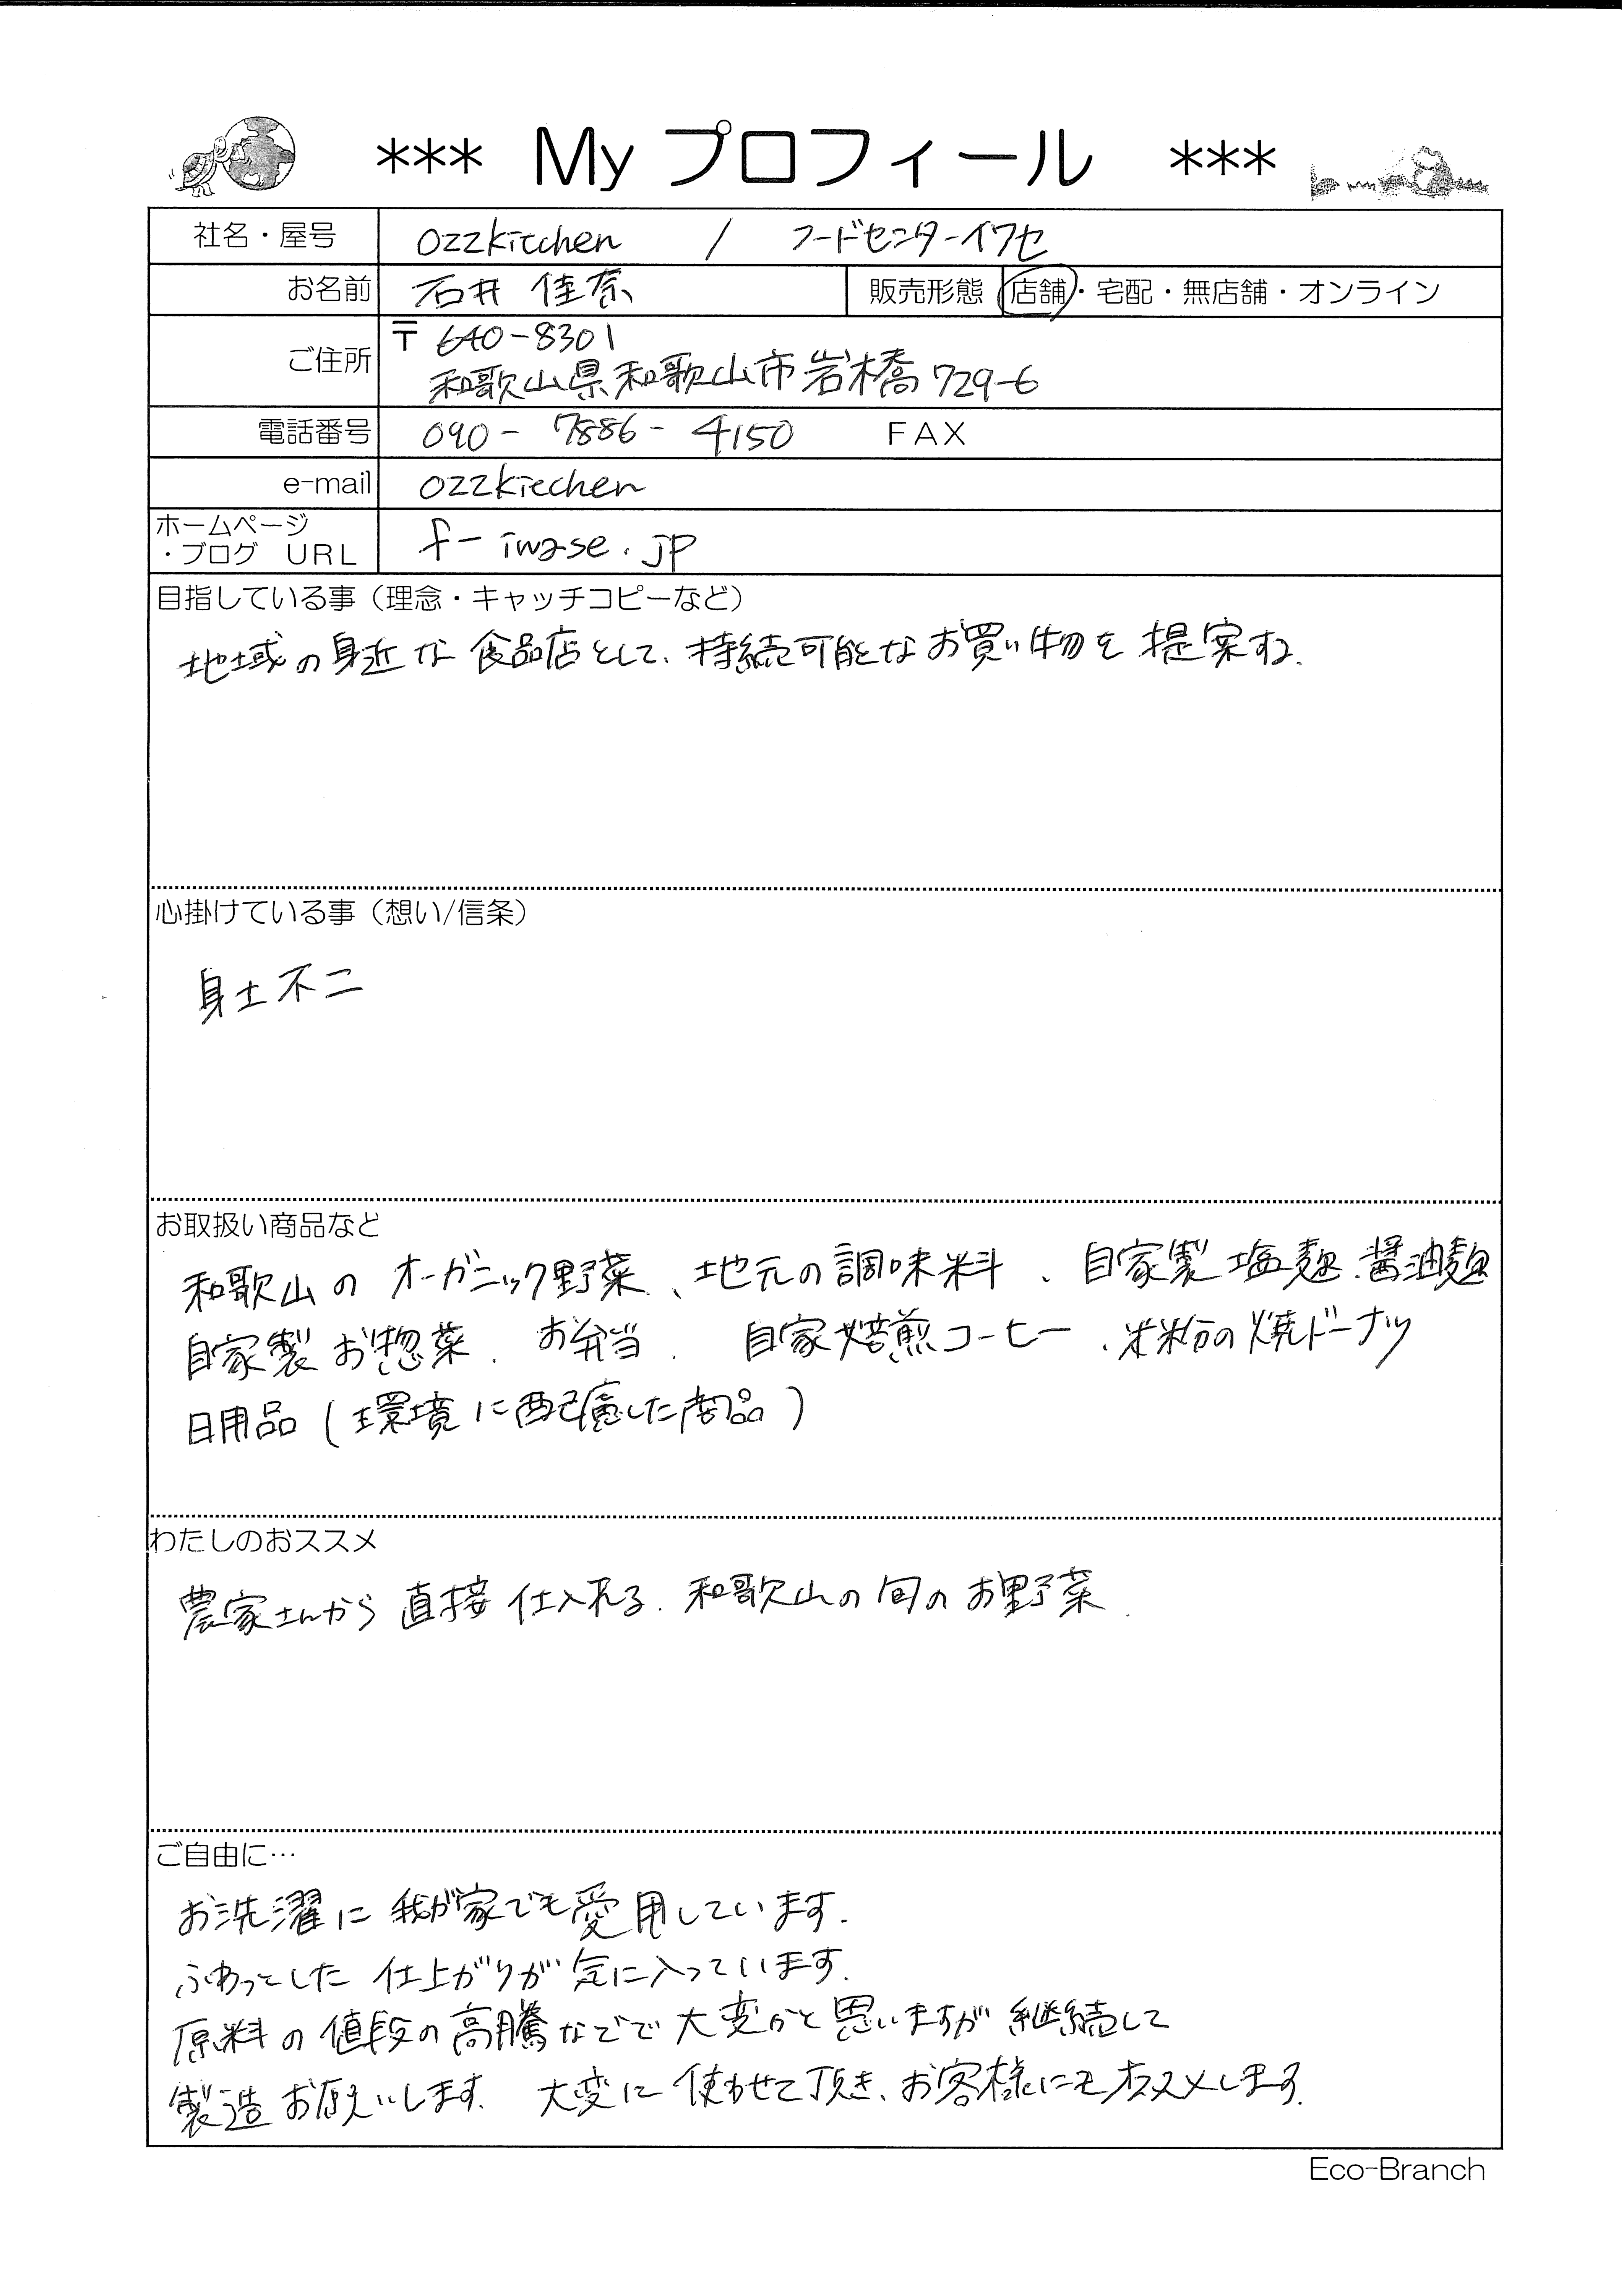 *** My プロフィール ***
社名・屋号 ozzkitchen / フードセンターイワセ
お名前 石井 佳奈 販売形態 店舗・宅配・無店舗・オンライン
ご住所 〒640-8301
和歌山県和歌山市岩橋729-6
電話番号 090-7886-4150 FAX
e-mail ozzkitchen
ホームページ
・ブログ URL f-iwase.jp
目指している事（理念・キャッチコピーなど）
地域の身近な食品店として、持続可能なお買い物を提案する。
心掛けている事（想い/信条）
身土不二
お取扱い商品など
和歌山のオーガニック野菜、地元の調味料、自家製塩麹、醤油麹
自家製お惣菜、お弁当、自家焙煎コーヒー、米粉の焼ドーナツ
日用品（環境に配慮した商品）
わたしのおススメ
農家さんから直接仕入れる、和歌山の旬のお野菜。
ご自由に…
お洗濯に我が家でも愛用しています。
ふわっとした仕上がりが気に入っています。
原料の値段の高騰などで大変かと思いますが継続して
製造お願いします。大変に使わせて頂き、お客様にもオススメします。
Eco-Branch